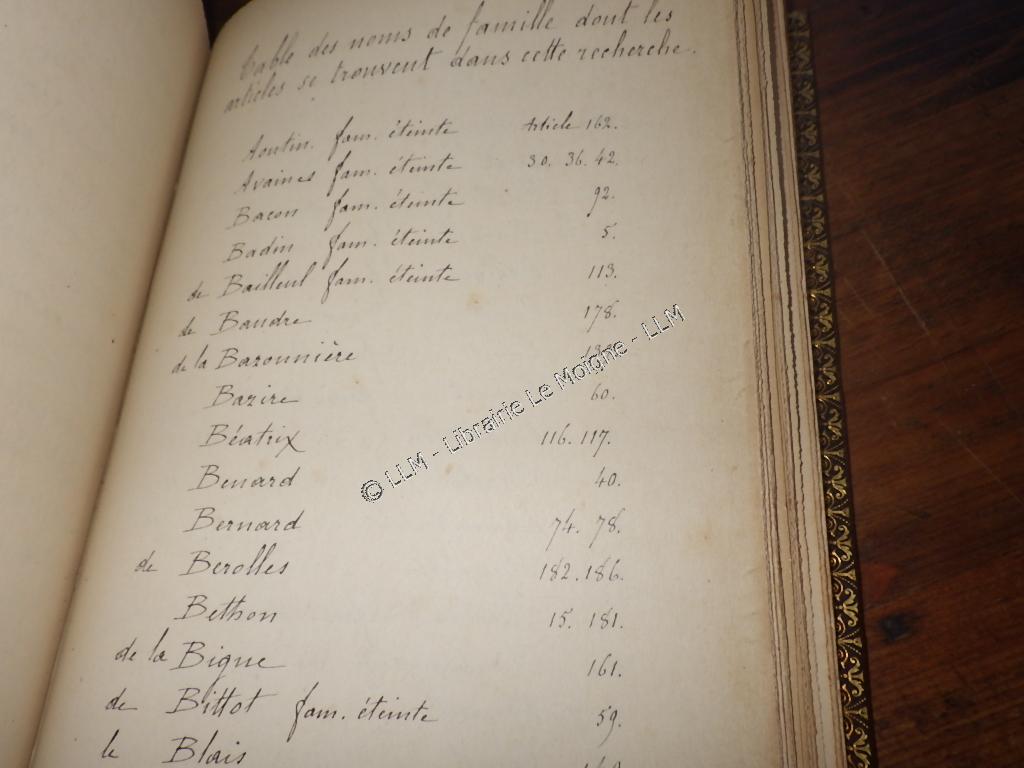 Table des noms de famille dont les
articles se trouvent dans cette recherche.
Aoutin fam. éteinte Article 162.
Avaines fam. éteinte 30. 36. 42.
Bacon fam. éteinte 92.
Badin fam. éteinte 5.
de Bailleul fam. éteinte 113.
de Baudre 178.
de la Baronnière
Bazire 60.
Béatrix 116. 117.
Benard 40.
Bernard 74. 78.
de Berolles 182. 186.
Bethon 15. 181.
de la Bigne 161.
de Bittot fam. éteinte 59.
le Blais
© LLM - Librairie Le Moigne - LLM